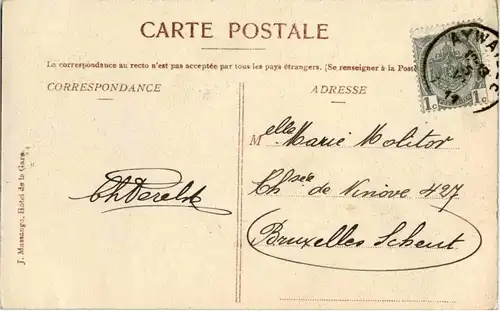 CARTE POSTALE
La correspondance au recto n'est pas acceptée par tous les pays étrangers. (Se renseigner à la Poste
CORRESPONDANCE
ADRESSE
1c 1c
Melle Marie Molitor
Chsée de Ninove 427
Bruxelles Scheut
J. Massange, Hôtel de la Gare.